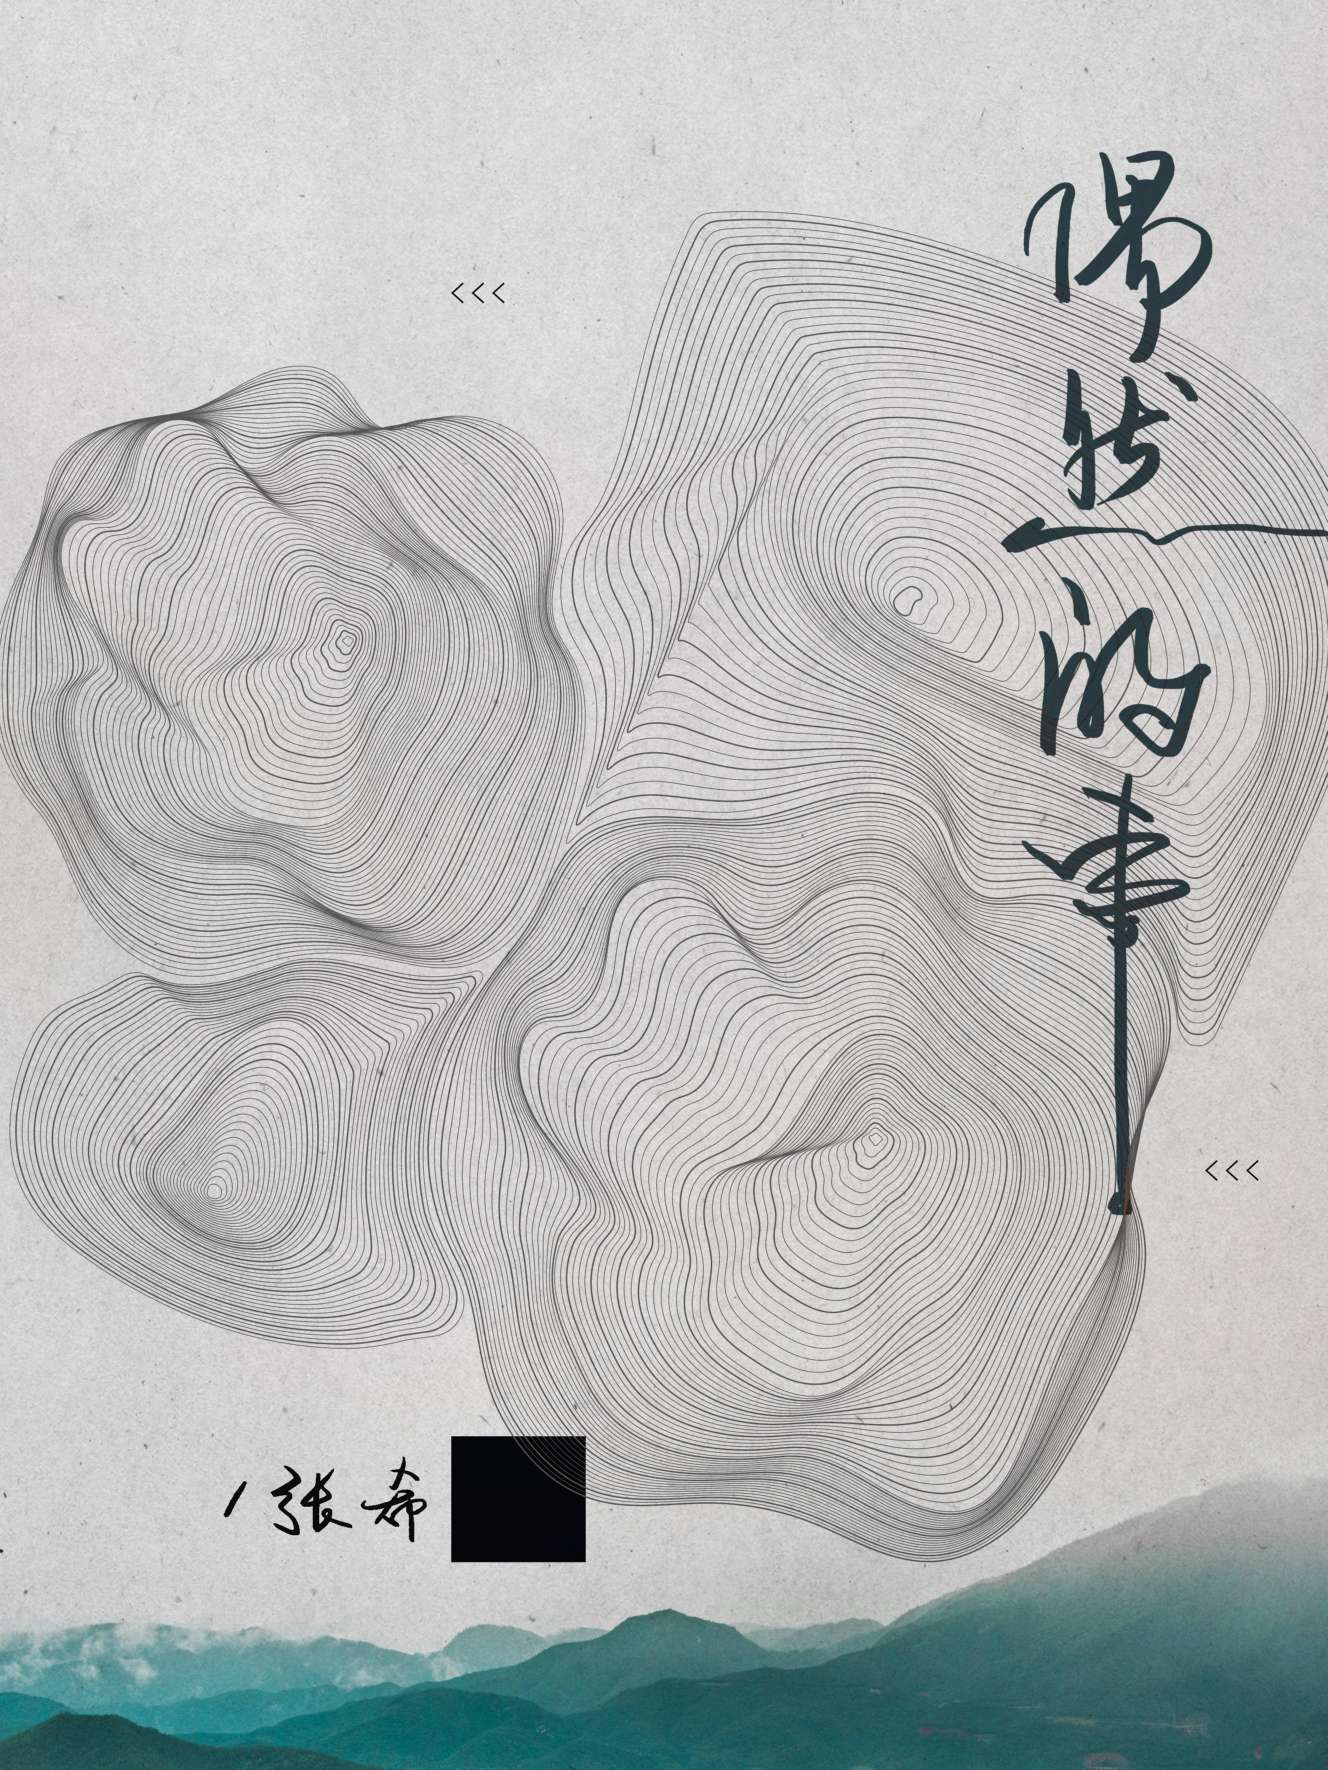 <<<
偶然的事
<<<
/张希